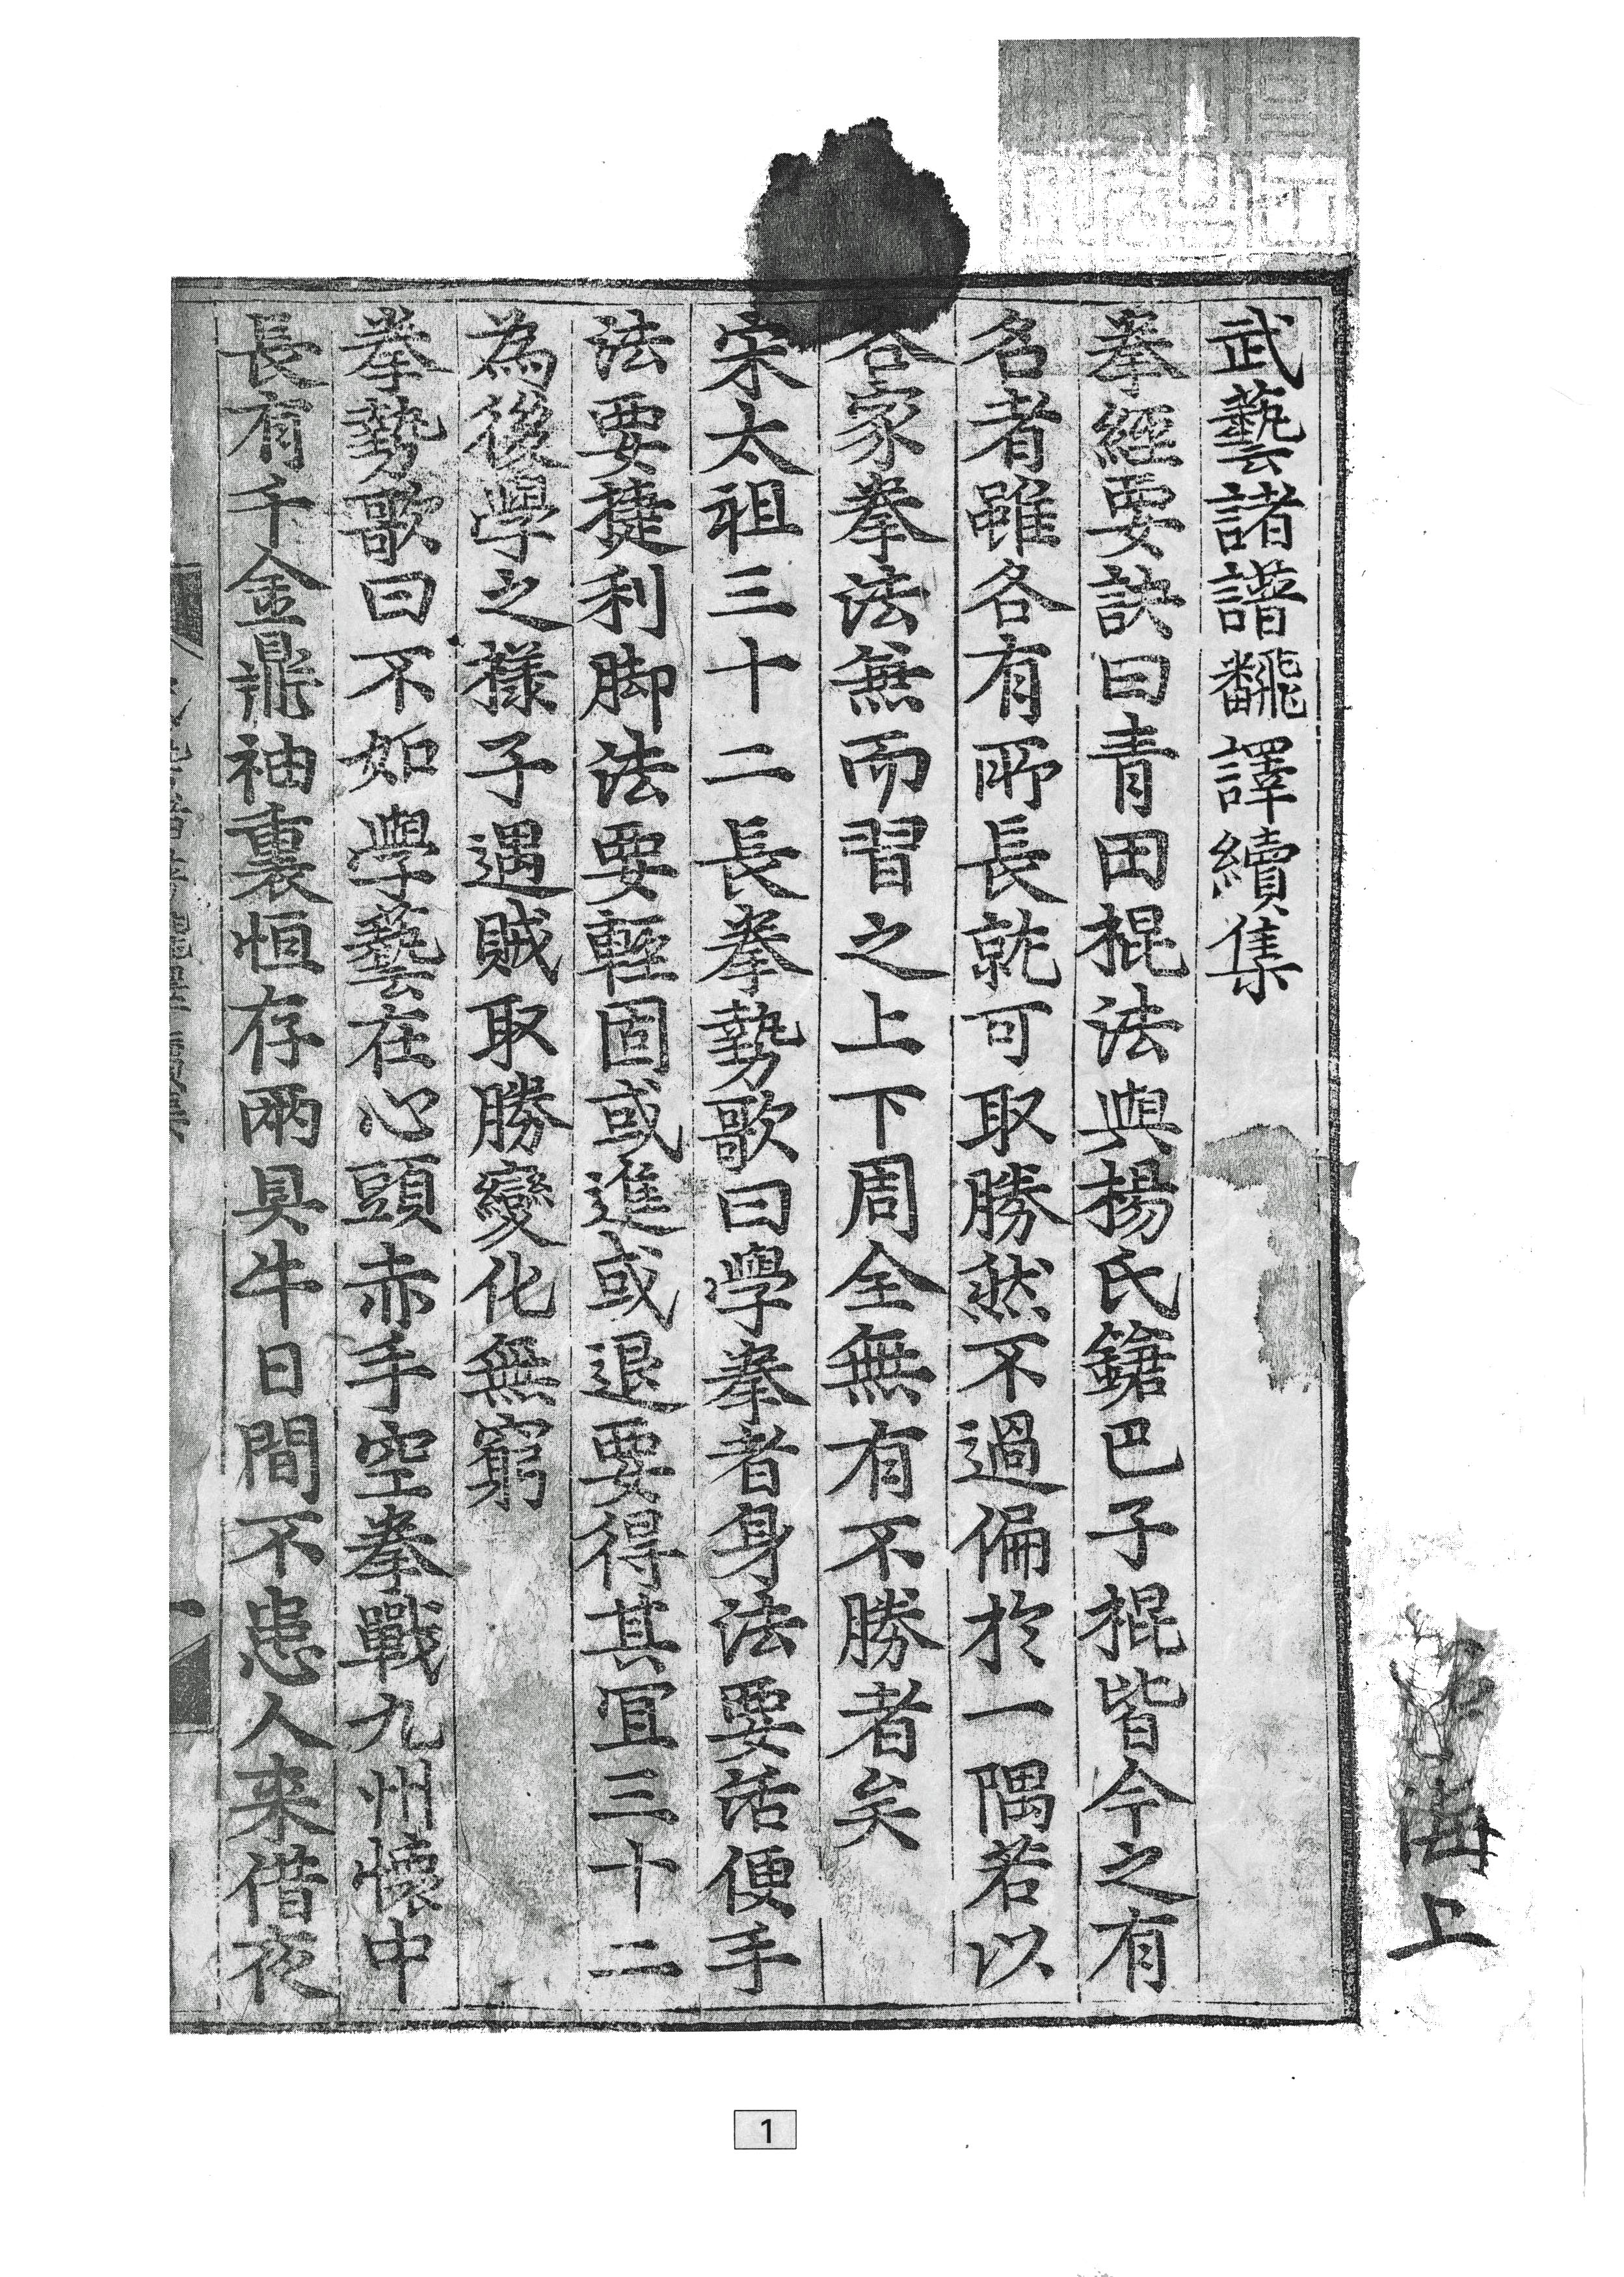 武藝諸譜飜譯續集
拳經要訣曰青田棍法與楊氏鎗巴子棍皆今之有
名者雖各有所長就可取勝然不過偏於一隅若以
各家拳法無而習之上下周全無有不勝者矣
宋太祖三十二長拳勢歌曰學拳者身法要活便手
法要揵利脚法要輕固或進或退要得其宜三十二
為後學之樣子遇賊取勝變化無窮
拳勢歌曰不如學藝在心頭赤手空拳戰九州懷中
長有千金鼎袖裏恒存兩具牛日間不患人来借夜
海上
1